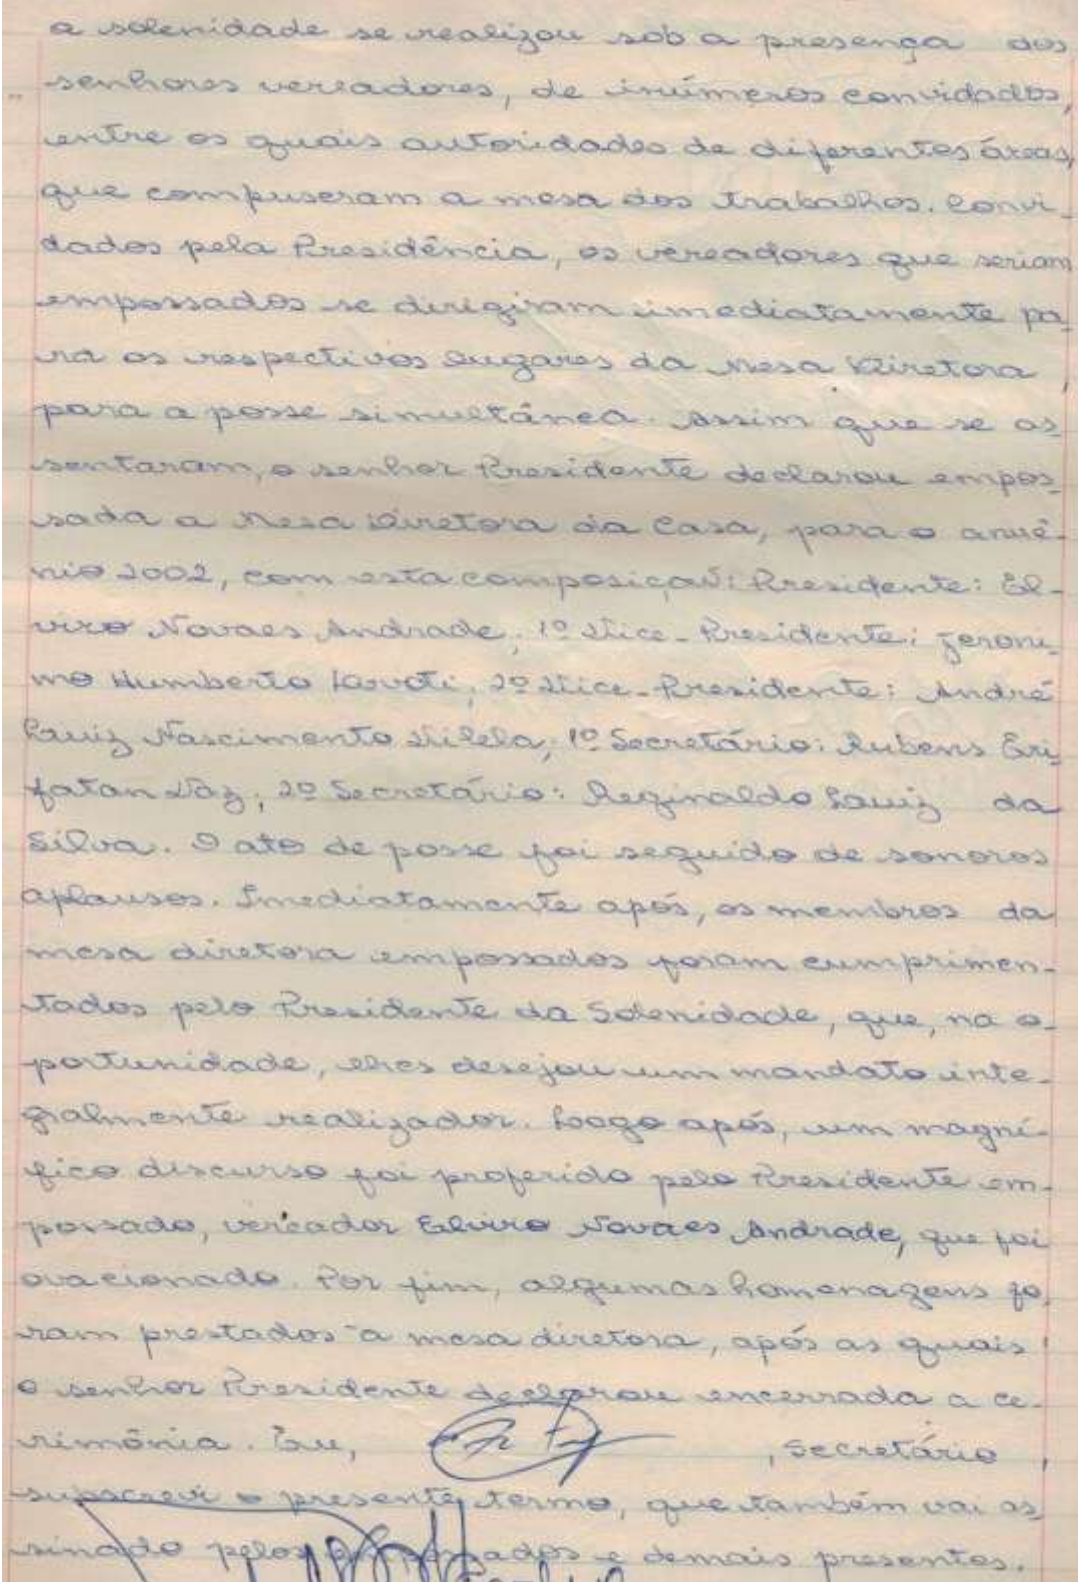 a solenidade se realizou sob a presença dos
senhores vereadores, de inúmeros convidados,
entre os quais autoridades de diferentes áreas,
que compuseram a mesa dos trabalhos. Convi-
dados pela Presidência, os vereadores que seriam
empossados se dirigiram imediatamente pa-
ra os respectivos lugares da Mesa Diretora
para a posse simultânea. Assim que se as-
sentaram, o senhor Presidente declarou empos-
sada a Mesa Diretora da Casa, para o anuê-
nio 2002, com esta composição: Presidente: El-
viro Novaes Andrade; 1º Vice-Presidente: Jeroni-
mo Humberto; 2º Vice-Presidente: André
Luiz Nascimento Vilela; 1º Secretário: Rubens Eri-
fatan Vaz; 2º Secretário: Reginaldo Luiz da
Silva. O ato de posse foi seguido de sonoros
aplausos. Imediatamente após, os membros da
mesa diretora empossados foram cumprimen-
tados pelo Presidente da Solenidade, que, na o-
portunidade, lhes desejou um mandato inte-
gralmente realizador. Logo após, um magní-
fico discurso foi proferido pelo Presidente em-
possado, vereador Elviro Novaes Andrade, que foi
ovacionado. Por fim, algumas homenagens fo-
ram prestados à mesa diretora, após as quais
o senhor Presidente declarou encerrada a ce-
rimônia. Eu, , Secretário
subscrevi o presente termo, que também vai as-
sinado pelos empossados e demais presentes.